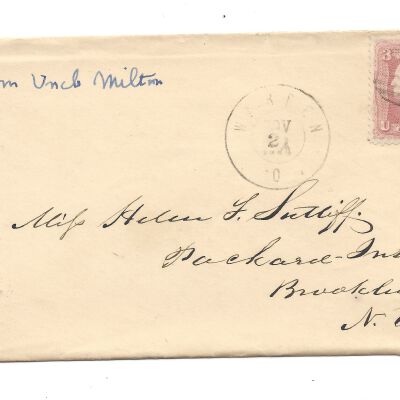 m Uncle Milton
WARREN
NOV
24
O
3
U
Miss Helen F. Sutliff,
Packard Ins
Brookly
N.